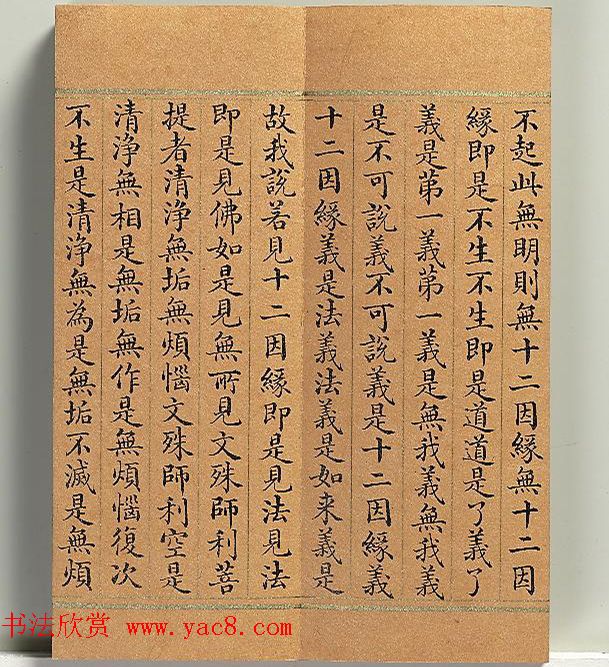 不起此無明則無十二因緣無十二因
緣即是不生不生即是道道是了義了
義是苐一義苐一義是無我義無我義
是不可說義不可說義是十二因緣義
十二因緣義是法義法義是如来義是
故我說若見十二因緣即是見法見法
即是見佛如是見無所見文殊師利菩
提者清淨無垢無煩惱文殊師利空是
清淨無相是無垢無作是無煩惱復次
不生是清淨無為是無垢不滅是無煩
书法欣赏 www.yac8.com